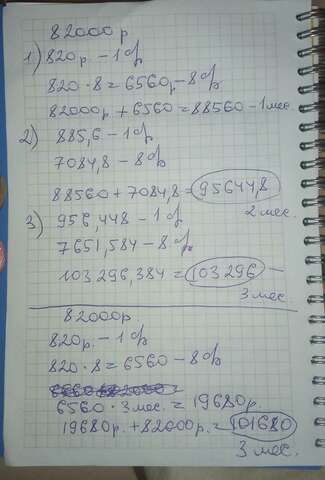 82000р
1) 820р. – 1%
820 · 8 = 6560р – 8%
82000р + 6560 = 88560 – 1 мес
2) 885,6 – 1%
7084,8 – 8%
88560 + 7084,8 = 95644,8
2 мес.
3) 956,448 – 1%
7651,584 – 8%
103296,384 = 103296 –
3 мес.
82000р.
820р. – 1%
820 · 8 = 6560 – 8%
6560 · 3 мес. = 19680р.
19680р. + 82000р. = 101680
3 мес.